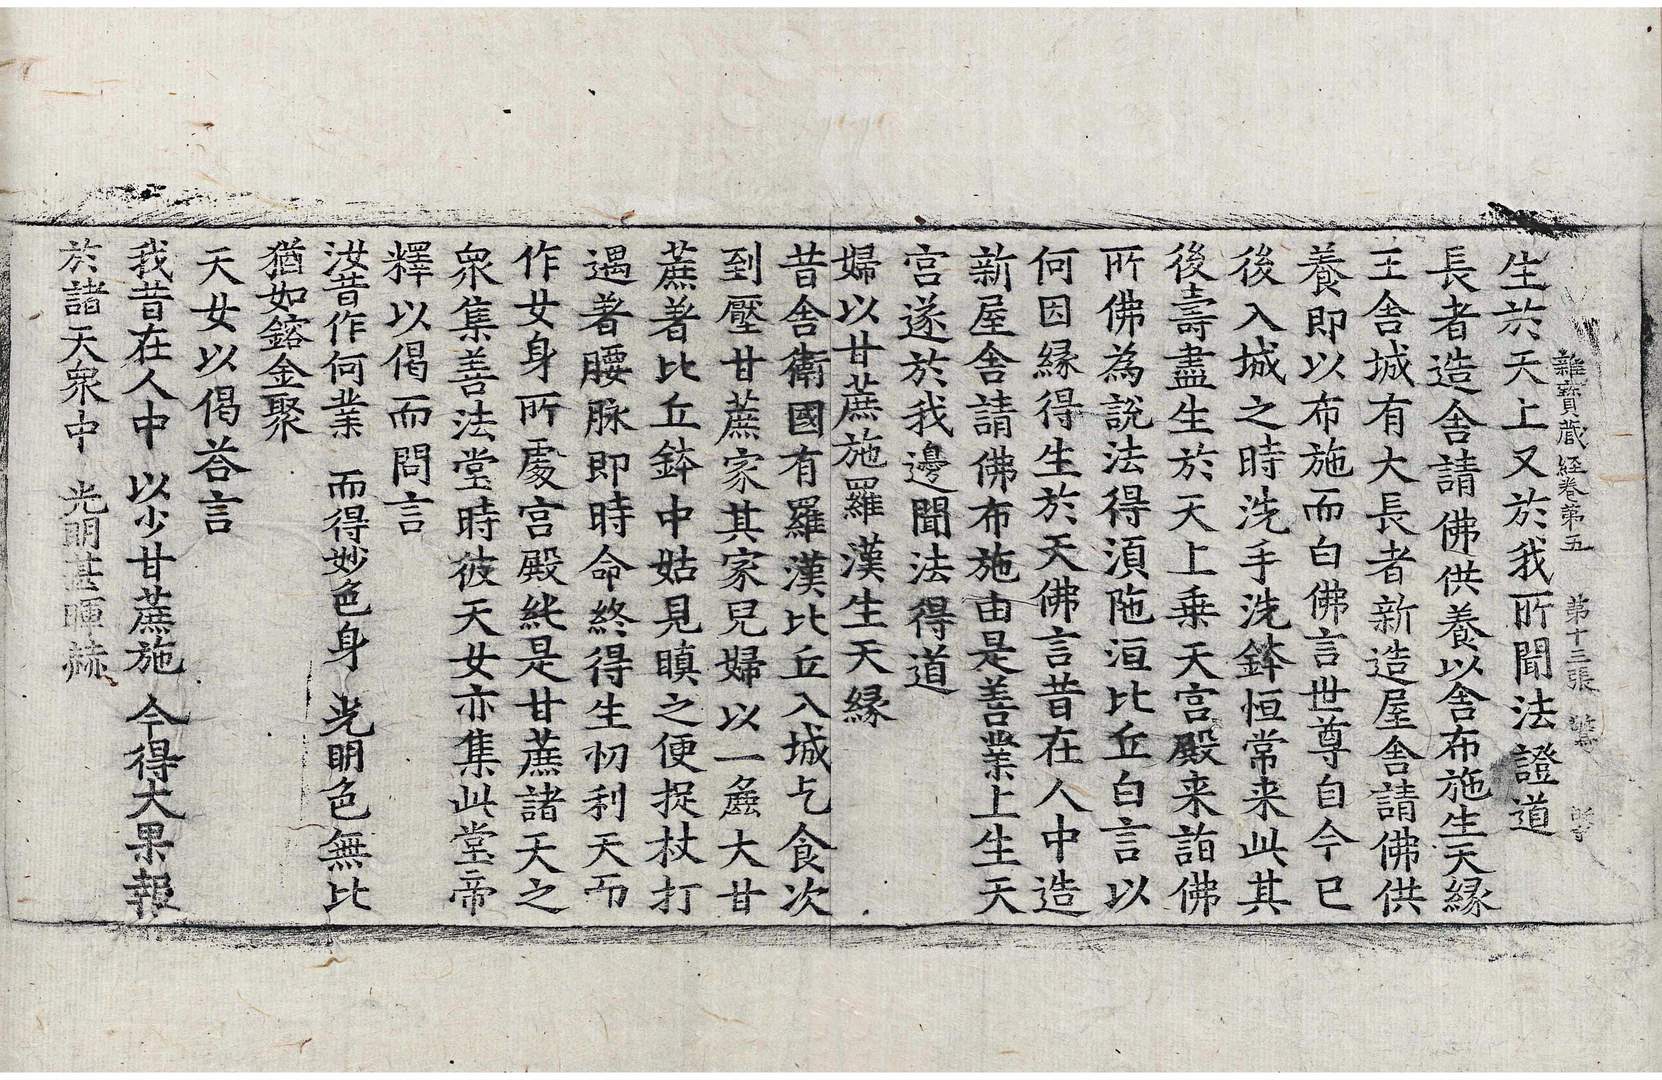 雜寶藏経卷第五 第十三張
生於天上又於我所聞法證道
長者造舍請佛供養以舍布施生天緣
王舍城有大長者新造屋舍請佛供
養即以布施而白佛言世尊自今已
後入城之時洗手洗鉢恒常来此其
後壽盡生於天上乗天宮殿来詣佛
所佛為說法得湏陁洹比丘白言以
何因緣得生於天佛言昔在人中造
新屋舍請佛布施由是善業上生天
宮遂於我邊聞法得道
婦以甘蔗施羅漢生天緣
昔舍衛國有羅漢比丘入城乞食次
到壓甘蔗家其家兒婦以一麁大甘
蔗著比丘鉢中姑見瞋之便捉杖打
遇著腰脉即時命終得生忉利天而
作女身所處宮殿純是甘蔗諸天之
衆集善法堂時彼天女亦集此堂帝
釋以偈而問言
汝昔作何業 而得妙色身 光明色無比
猶如鎔金聚
天女以偈荅言
我昔在人中 以少甘蔗施 今得大果報
於諸天衆中 光明甚暉赫